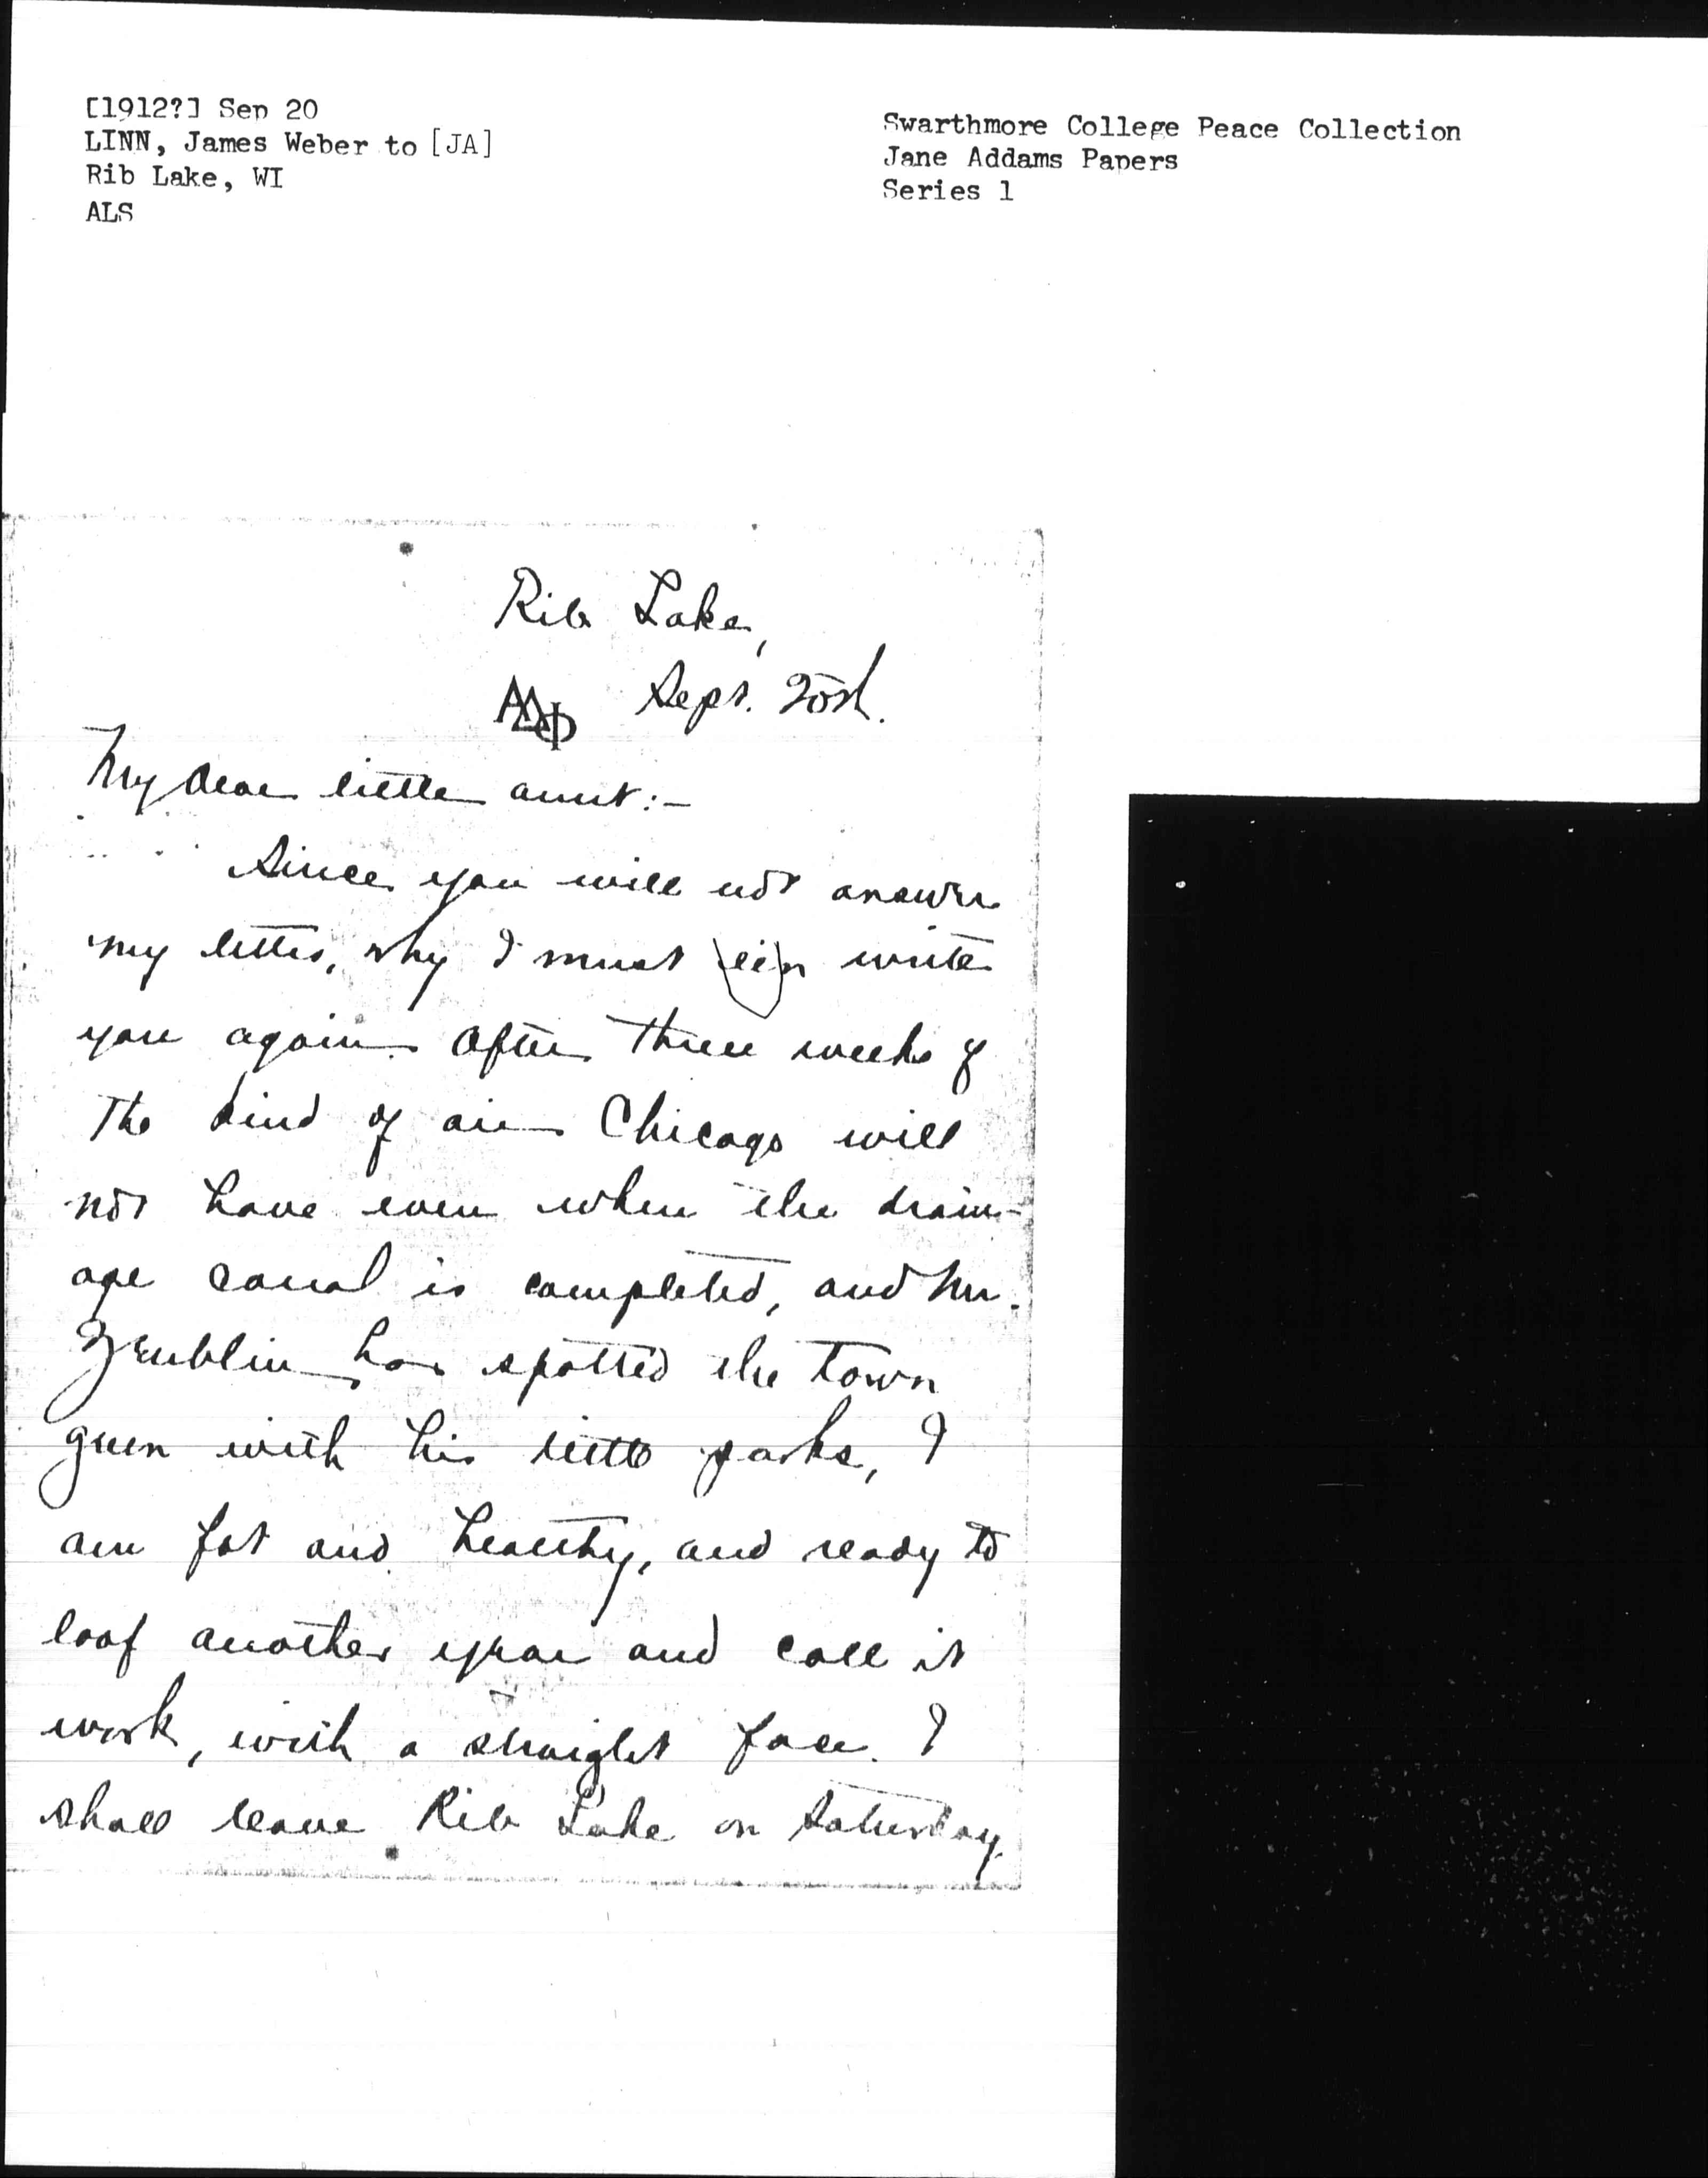 [1912?] Sep 20
LINN, James Weber to [JA]
Rib Lake, WI
ALS
Swarthmore College Peace Collection
Jane Addams Papers
Series 1
Rib Lake,
ΑΔΦ Sept. 20th.
My dear little aunt:-
Since you will not answer
my letters, why I must write
you again. After three weeks of
the kind of air Chicago will
not have even when the drain-
age canal is completed, and Mr.
Zeublin has spotted the town
green with his little parks, I
am fat and healthy, and ready to
loaf another year and call it
work, with a straight face. I
shall leave Rib Lake on Saturday,